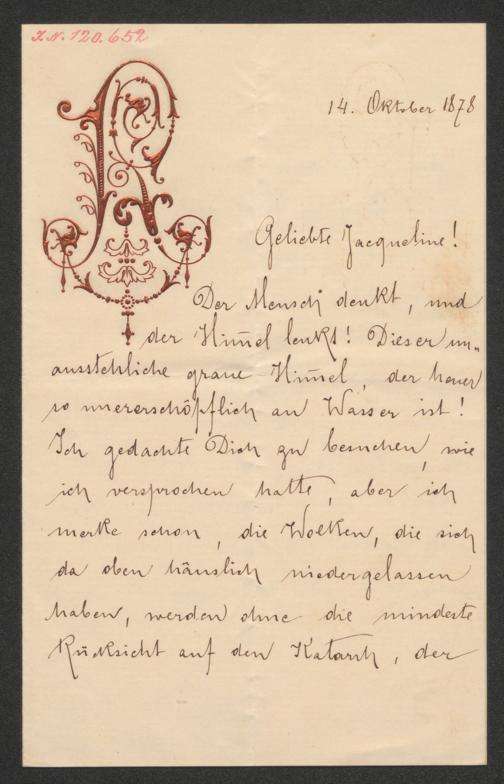 I.N. 120.652
14. Oktober 1878
Geliebte Jacqueline!
Der Mensch denkt, und
der Him̅el lenkt! Dieser un„
ausstehliche graue Him̅el, der heuer
so unererschöpflich an Wasser ist!
Ich gedachte Dich zu besuchen, wie
ich versprochen hatte, aber ich
merke schon, die Wolken, die sich
da oben häuslich niedergelassen
haben, werden ohne die mindeste
Rücksicht auf den Katarrh, der